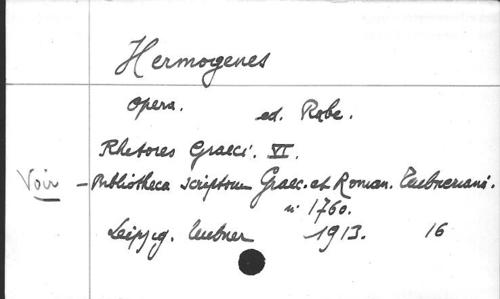 Hermogenes
Opera. ed. Rabe.
Rhetores Graeci. VI.
Voir - Bibliotheca scriptorum Graec. et Roman. Teubneriana.
n° 1760.
Leipzig. Teubner 1913. 16